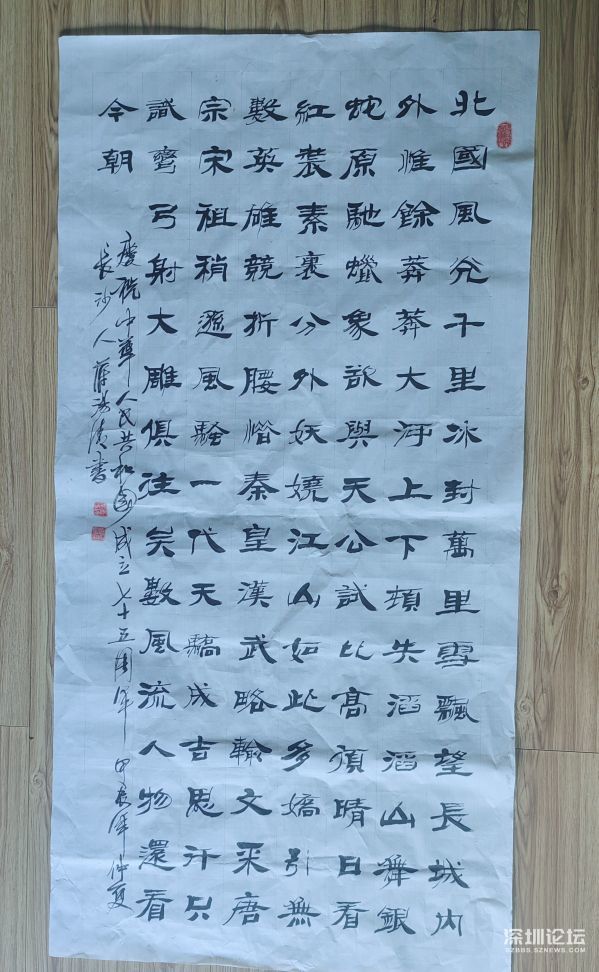 北國風光千里冰封萬里雪飄望長城内
外惟餘莽莽大河上下頓失滔滔山舞銀
蛇原馳蠟象欲與天公試比高須晴日看
紅裝素裹分外妖嬈江山如此多嬌引無
數英雄競折腰惜秦皇漢武略輸文采唐
宗宋祖稍遜風騷一代天驕成吉思汗只
識彎弓射大雕俱往矣數風流人物還看
今朝
慶祝中華人民共和國成立七十五周年 甲辰年仲夏
長沙人書
深圳论坛
SZBBS.SZNEWS.COM